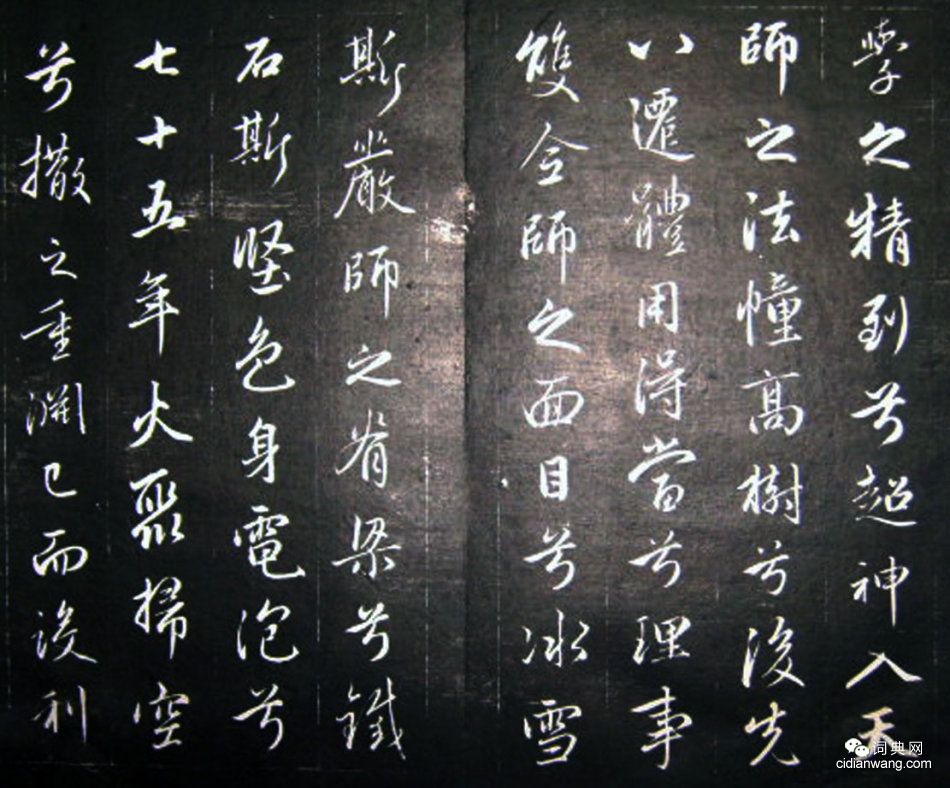 學之精到兮超神入天
師之法幢高樹兮後先
八還體用得當兮理事
雙全師之面目兮冰雪
斯嚴師之脊梁兮鐵
石斯堅色身電泡兮
七十五年火聚掃空
兮撒之重淵已而後利
词典网
cidianwang.com